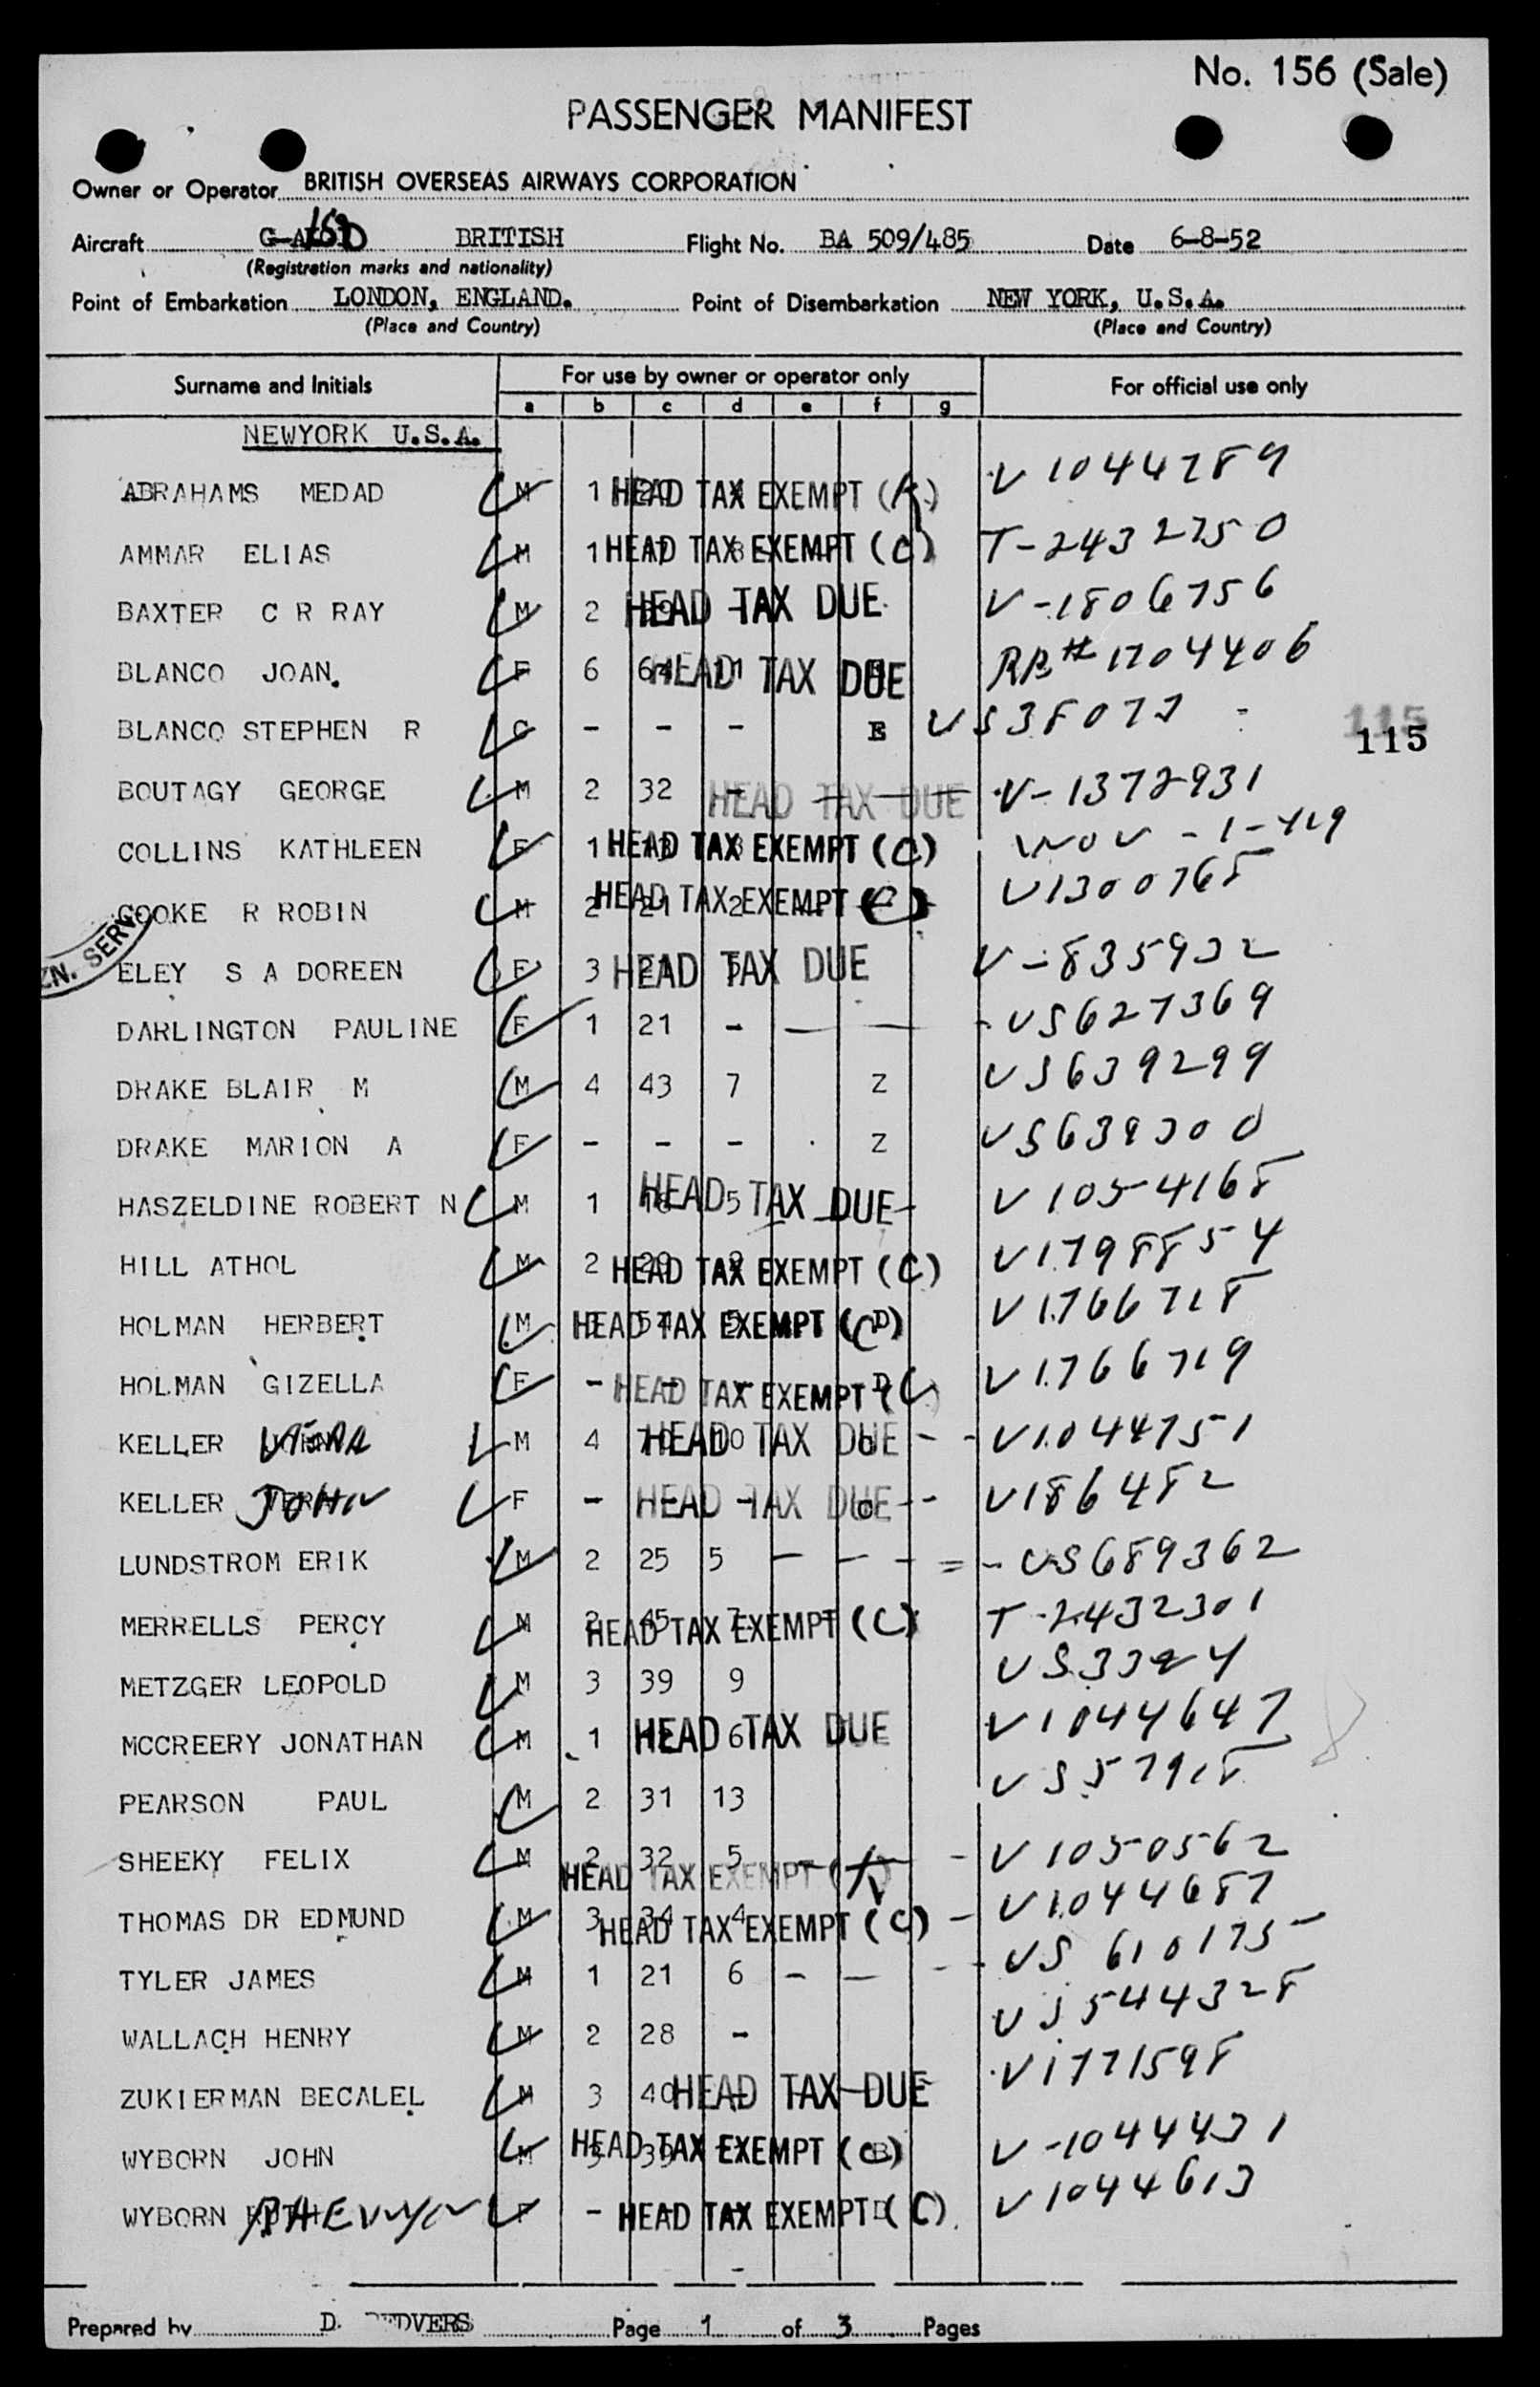 No. 156 (Sale)
PASSENGER MANIFEST
Owner or Operator BRITISH OVERSEAS AIRWAYS CORPORATION
Aircraft BRITISH Flight No. BA 509/485 Date 6-8-52
(Registration marks and nationality)
Point of Embarkation LONDON, ENGLAND. Point of Disembarkation NEW YORK, U.S.A.
(Place and Country) (Place and Country)
Surname and Initials For use by owner or operator only For official use only
a b c d e f g
NEWYORK U.S.A.
ABRAHAMS MEDAD M 1 HEAD TAX EXEMPT (A) V 1044289
AMMAR ELIAS M 1 HEAD TAX EXEMPT (C) T-2432250
BAXTER C R RAY M 2 HEAD TAX DUE V-1806756
BLANCO JOAN. F 6 HEAD TAX DUE 1704406
BLANCO STEPHEN R - - - E
115
BOUTAGY GEORGE M 2 32 - HEAD TAX DUE V-1372931
COLLINS KATHLEEN F 1 HEAD TAX EXEMPT (C)
COOKE R ROBIN M 2 21 2 HEAD TAX EXEMPT (C) V1300768
ZN. SERV.
ELEY S A DOREEN F 3 HEAD TAX DUE V-835932
DARLINGTON PAULINE F 1 21 - VS627369
DRAKE BLAIR M M 4 43 7 Z VS639299
DRAKE MARION A F - - - Z VS639300
HASZELDINE ROBERT N M 1 HEAD TAX DUE V1054168
HILL ATHOL M 2 HEAD TAX EXEMPT (C) V1798854
HOLMAN HERBERT M HEAD TAX EXEMPT (C) V1766718
HOLMAN GIZELLA F - HEAD TAX EXEMPT (C) V1766719
KELLER M 4 HEAD TAX DUE V1044751
KELLER JOHN F - HEAD TAX DUE V186482
LUNDSTROM ERIK M 2 25 5 VS689362
MERRELLS PERCY M 2 45 7 HEAD TAX EXEMPT (C) T-2432301
METZGER LEOPOLD M 3 39 9
MCCREERY JONATHAN M 1 6 HEAD TAX DUE V1044647
PEARSON PAUL M 2 31 13 VS57918
SHEEKY FELIX M 2 32 5 HEAD TAX EXEMPT V1050562
THOMAS DR EDMUND M 3 34 4 HEAD TAX EXEMPT (C) V1044687
TYLER JAMES M 1 21 6 - VS 610175
WALLACH HENRY M 2 28 - VS544328
ZUKIERMAN BECALEL M 3 40 HEAD TAX DUE V1771598
WYBORN JOHN M HEAD TAX EXEMPT (C) V-1044431
WYBORN F - HEAD TAX EXEMPT (C) V1044613
Prepared by D. Page 1 of 3 Pages